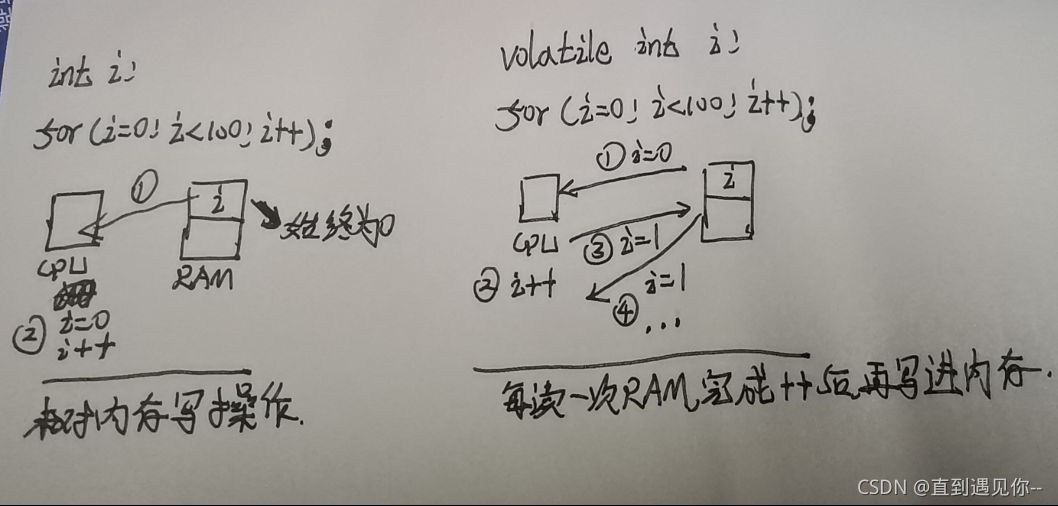 int i;
for (i=0; i<100; i++);
①
i
始终为0
CPU
RAM
② i=0
i++
对内存写操作.
volatile int i;
for (i=0; i<100; i++);
① i=0
i
CPU
③ i=1
② i++
i=1
④
...
每读一次RAM完成++后再写进内存.
CSDN @直到遇见你--